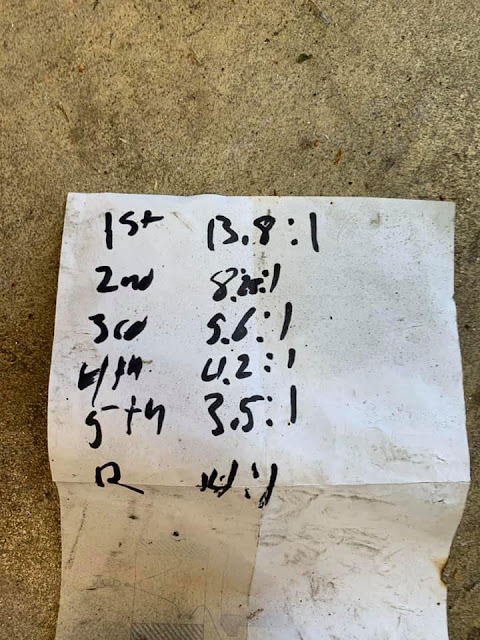 1st 13.8:1
2nd
3rd 5.6:1
4th 4.2:1
5th 3.5:1
R